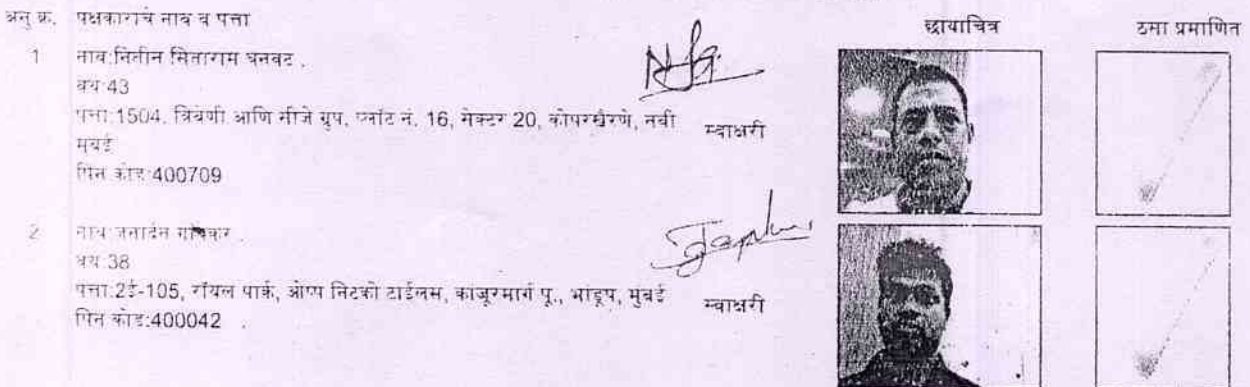 अनु क्र. पक्षकाराचे नाव व पत्ता छायाचित्र ठसा प्रमाणित
1 नाव:नितीन सिताराम घनवट .
वय:43
पत्ता:1504, त्रिवेणी आणि सीजे ग्रुप, प्लॉट नं. 16, सेक्टर 20, कोपरखैरणे, नवी
मुंबई
स्वाक्षरी
पिन कोड:400709
2 नाव:जनार्दन गांवकर .
वय:38
पत्ता:2ई-105, रॉयल पार्क, ओप्प निटको टाईलस, कांजूरमार्ग पू., भांडूप, मुंबई
स्वाक्षरी
पिन कोड:400042 .